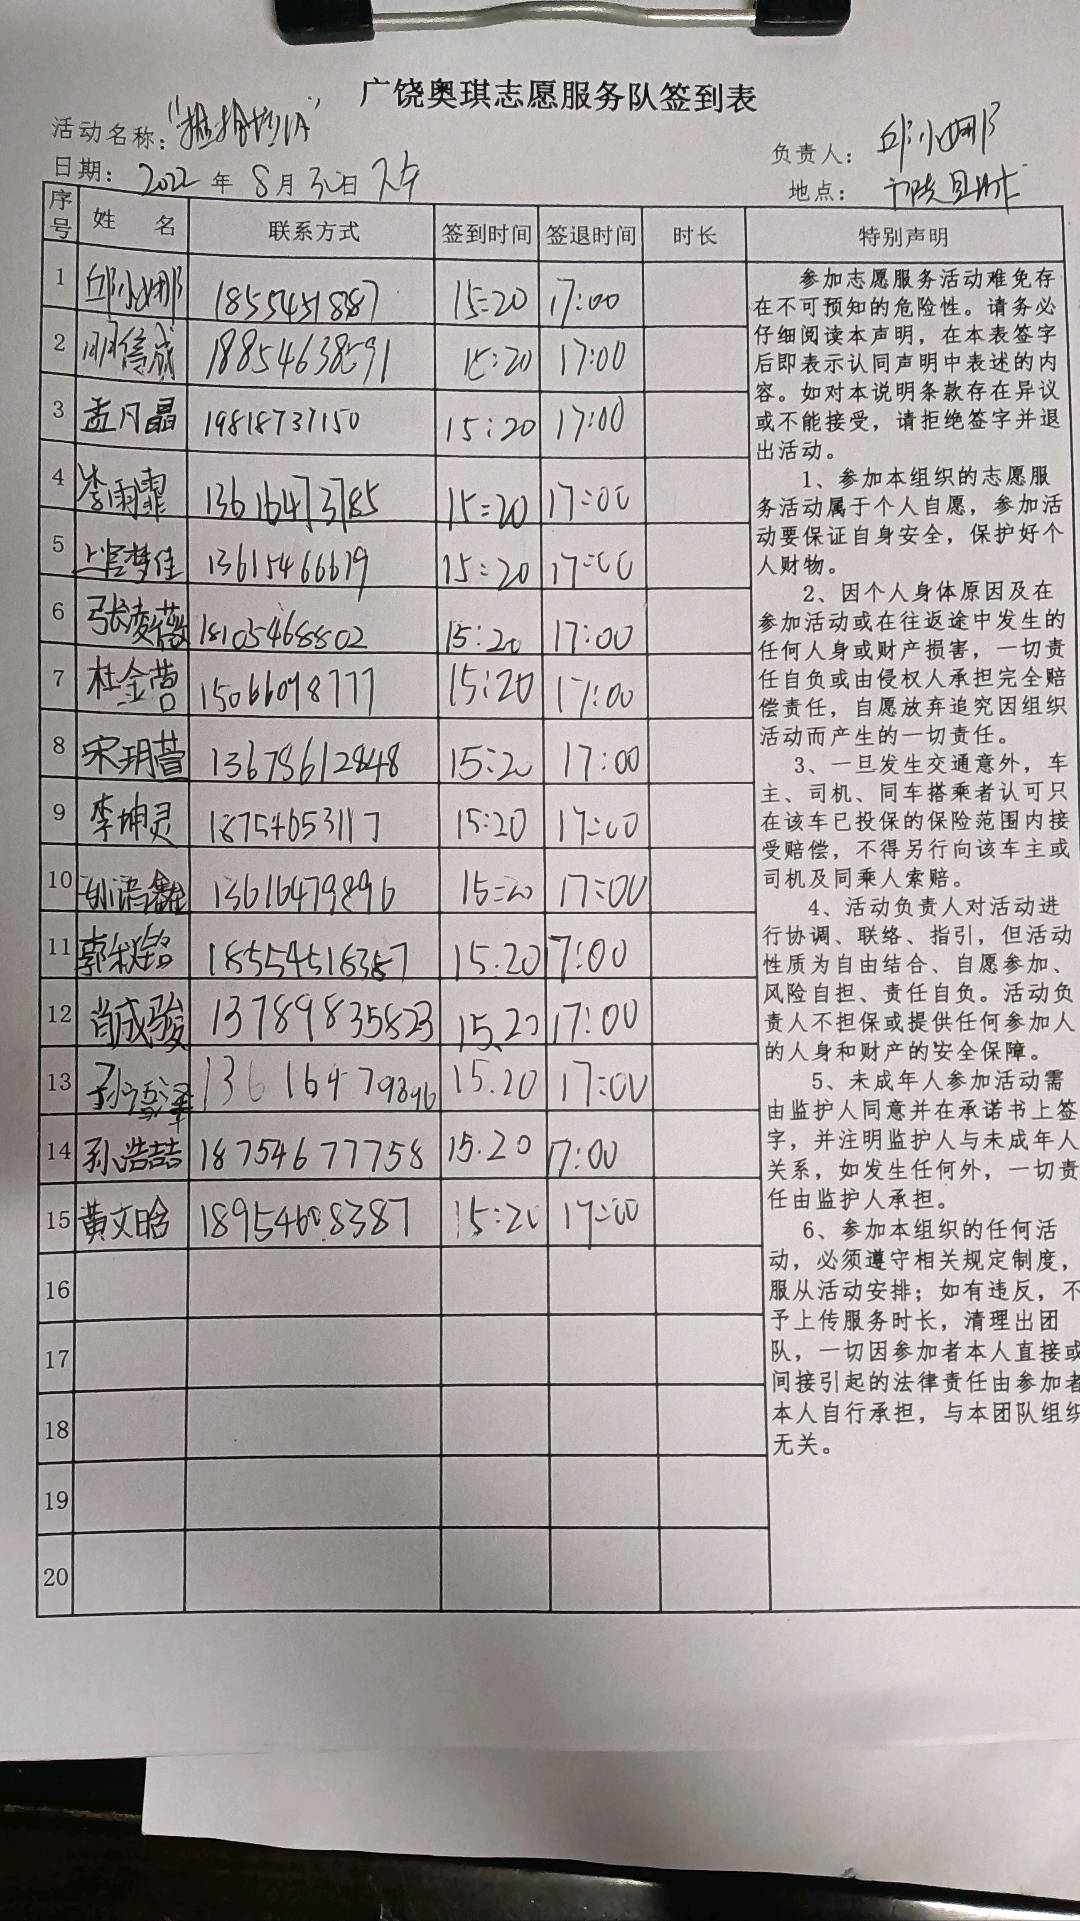 广饶奥琪志愿服务队签到表
活动名称：
负责人：邱小娜
日期：2022年8月30日下午
地点：
序号 姓 名 联系方式 签到时间 签退时间 时长 特别声明
1 邱小娜 18554451887 15:20 17:00
2 信成 18854638591 15:20 17:00
3 孟凡晶 19818737150 15:20 17:00
4 李雨霏 13616473785 15:20 17:00
5 上官梦佳 13615466619 15:20 17:00
6 张凌薇 18105468802 15:20 17:00
7 杜金营 15066098777 15:20 17:00
8 宋玥萱 13678612848 15:20 17:00
9 李坤灵 18754653117 15:20 17:00
10 13616479896 15:20 17:00
11 郭秋铭 15.20 17:00
12 肖成骏 13789835823 15.20 17:00
13 孙语泽 13616479896 15.20 17:00
14 孙浩喆 18754677758 15.20 17:00
15 黄文晗 18954608387 15:20 17:00
16
17
18
19
20
参加志愿服务活动难免存
在不可预知的危险性。请务必
仔细阅读本声明，在本表签字
后即表示认同声明中表述的内
容。如对本说明条款存在异议
或不能接受，请拒绝签字并退
出活动。
1、参加本组织的志愿服
务活动属于个人自愿，参加活
动要保证自身安全，保护好个
人财物。
2、因个人身体原因及在
参加活动或在往返途中发生的
任何人身或财产损害，一切责
任自负或由侵权人承担完全赔
偿责任，自愿放弃追究因组织
活动而产生的一切责任。
3、一旦发生交通意外，车
主、司机、同车搭乘者认可只
在该车已投保的保险范围内接
受赔偿，不得另行向该车主或
司机及同乘人索赔。
4、活动负责人对活动进
行协调、联络、指引，但活动
性质为自由结合、自愿参加、
风险自担、责任自负。活动负
责人不担保或提供任何参加人
的人身和财产的安全保障。
5、未成年人参加活动需
由监护人同意并在承诺书上签
字，并注明监护人与未成年人
关系，如发生任何外，一切责
任由监护人承担。
6、参加本组织的任何活
动，必须遵守相关规定制度，
服从活动安排；如有违反，不
予上传服务时长，清理出团
队，一切因参加者本人直接或
间接引起的法律责任由参加者
本人自行承担，与本团队组织
无关。